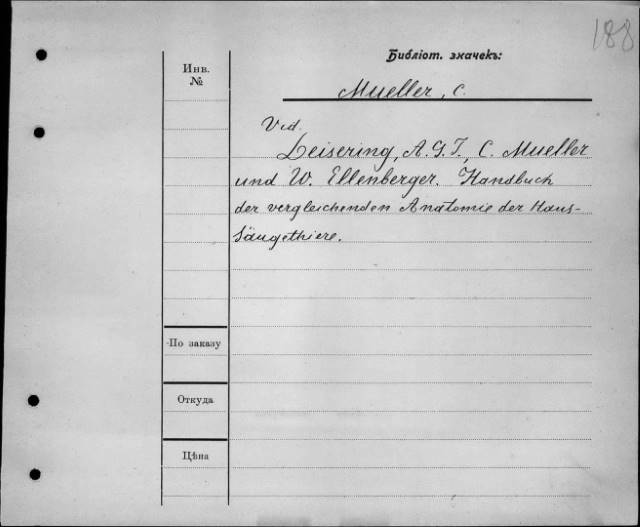 188
Библіот. значекъ:
Инв.
№
Mueller, C.
Vid.
Leisering, A.G.T., C. Mueller
und W. Ellenberger. Handbuch
der vergleichenden Anatomie der Haus-
säugethiere.
По заказу
Откуда
Цѣна